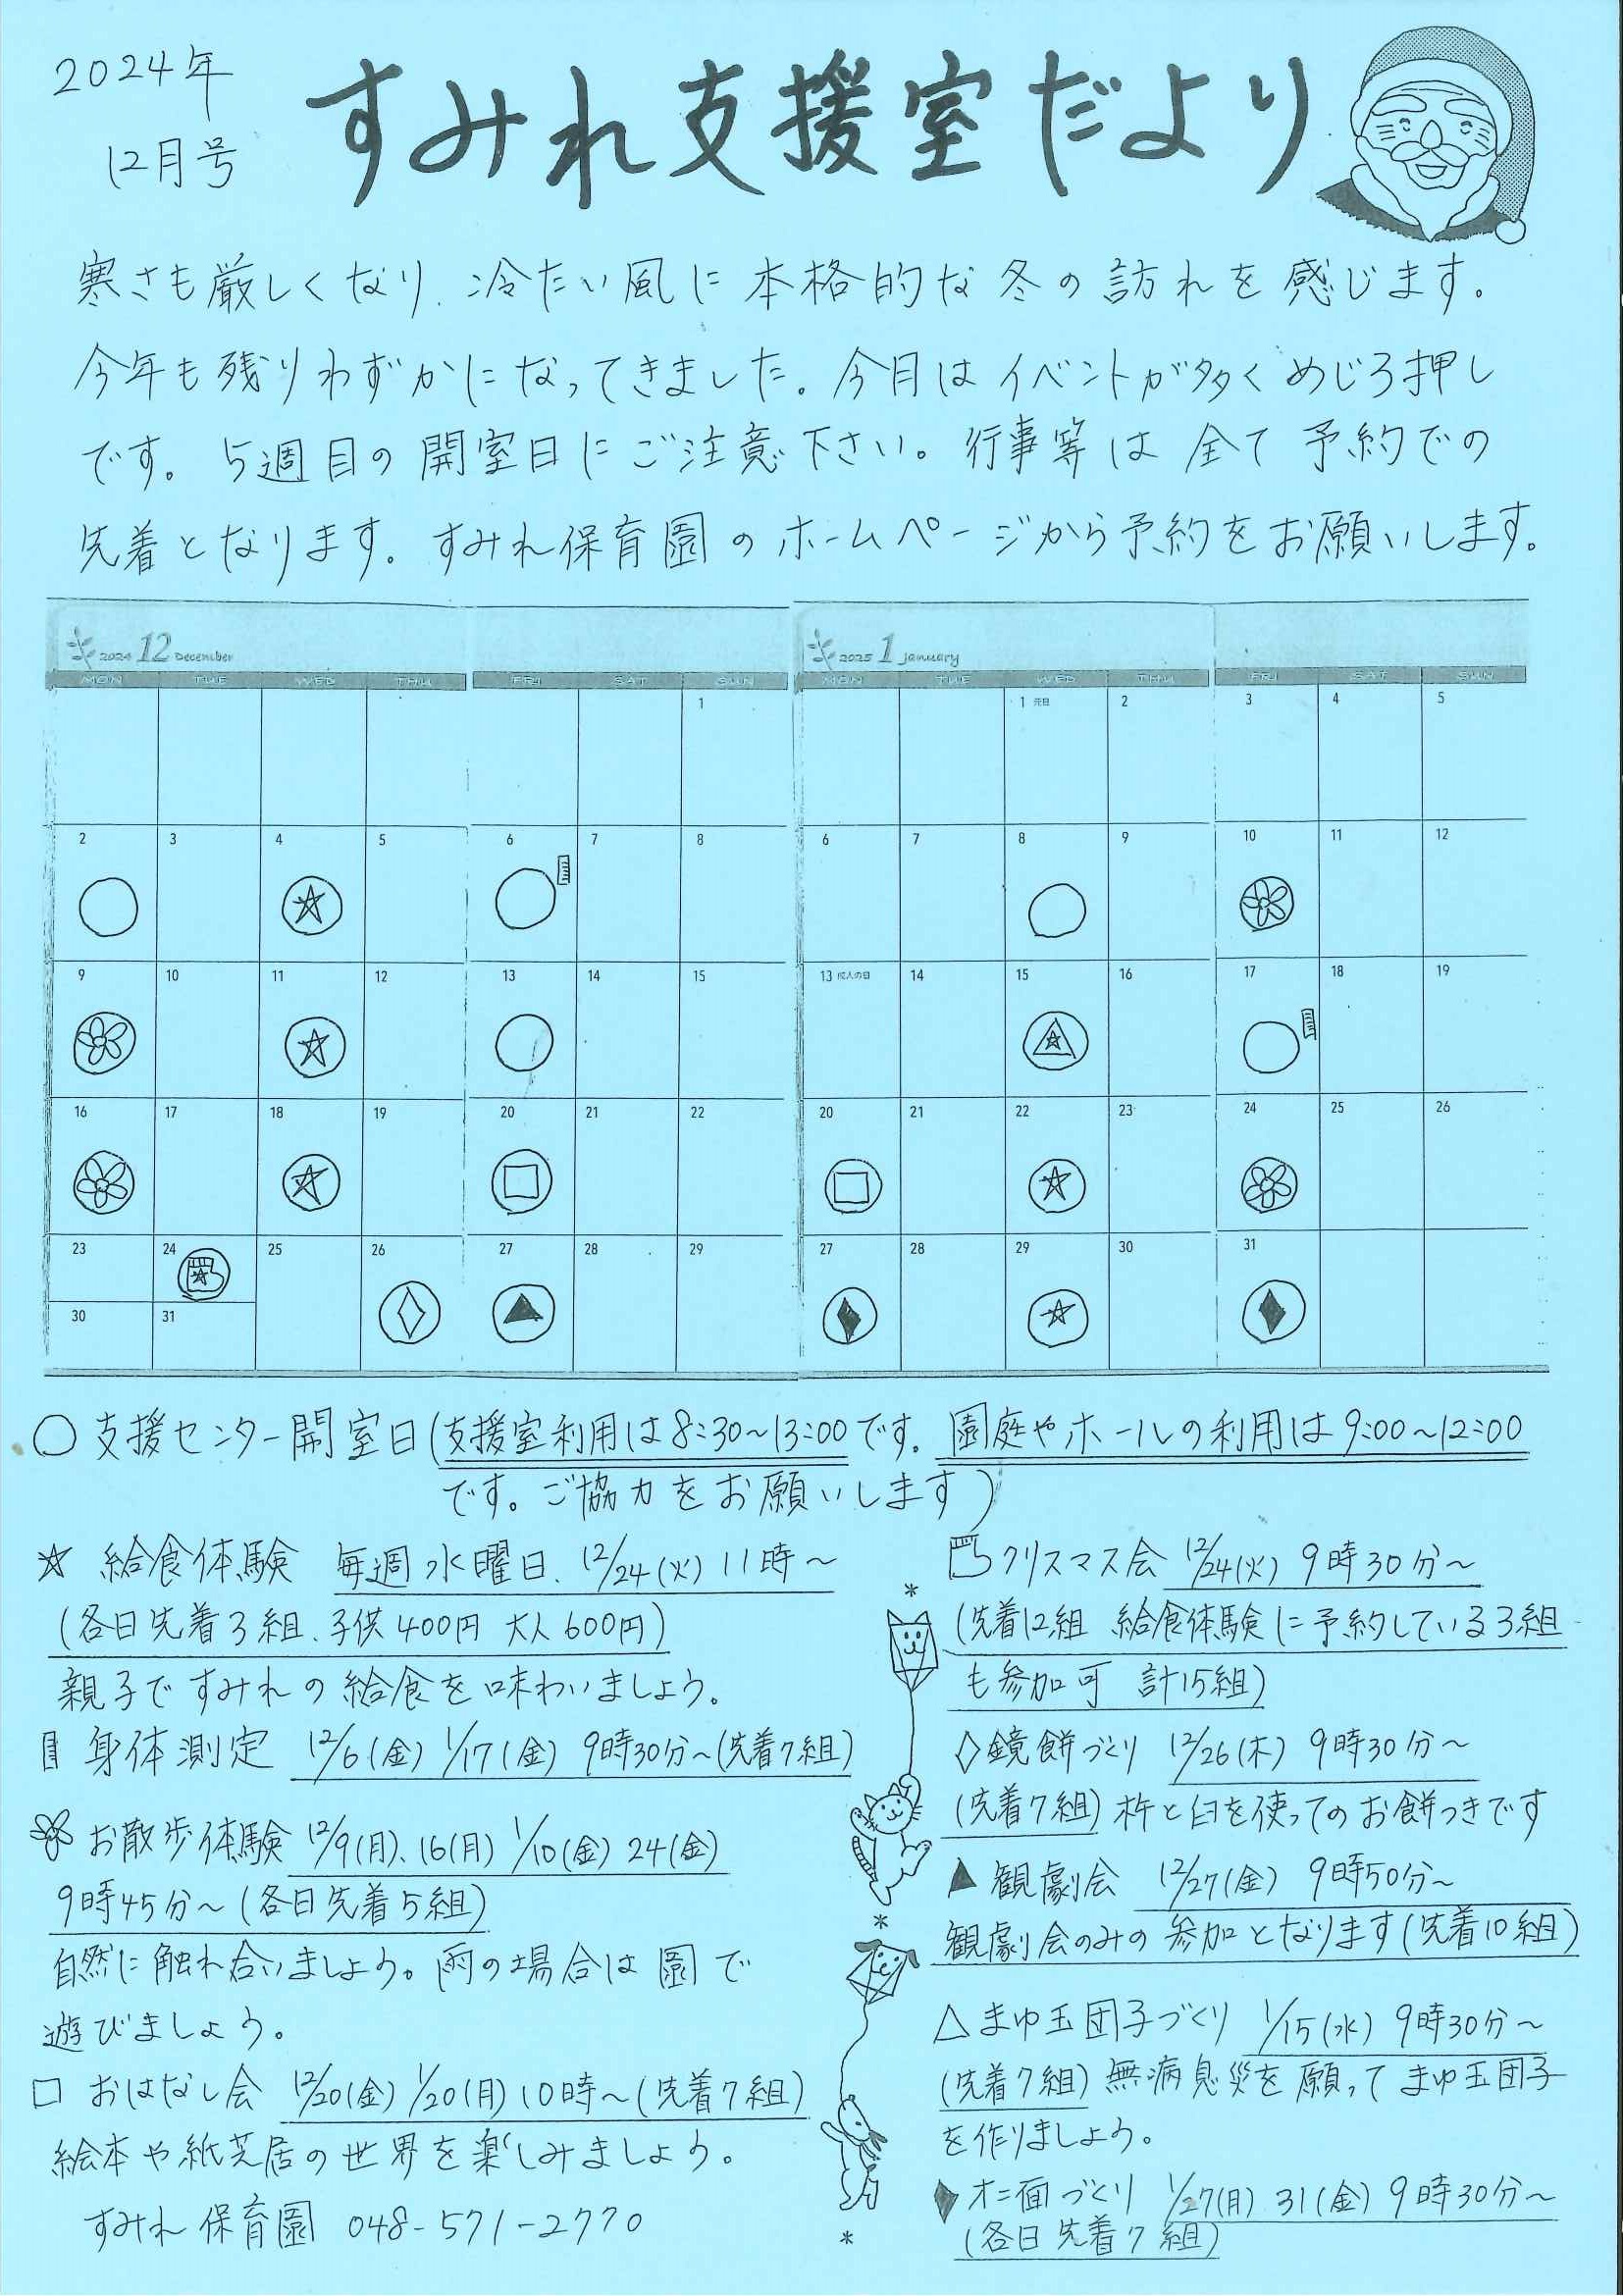 2024年
12月号
すみれ支援室だより
寒さも厳しくなり、冷たい風に本格的な冬の訪れを感じます。
今年も残りわずかになってきました。今月はイベントが多くめじろ押し
です。5週目の開室日にご注意下さい。行事等は全て予約での
先着となります。すみれ保育園のホームページから予約をお願いします。
2024 12 December
MON TUE WED THU FRI SAT SUN
1
2 3 4 5 6 7 8
9 10 11 12 13 14 15
16 17 18 19 20 21 22
23 24 25 26 27 28 29
30 31
2025 1 January
MON TUE WED THU FRI SAT SUN
1 元日 2 3 4 5
6 7 8 9 10 11 12
13 成人の日 14 15 16 17 18 19
20 21 22 23 24 25 26
27 28 29 30 31
○ 支援センター開室日(支援室利用は8:30~13:00です。園庭やホールの利用は9:00~12:00
です。ご協力をお願いします)
☆ 給食体験 毎週水曜日、12/24(火) 11時~
(各日先着3組、子供400円 大人600円)
親子ですみれの給食を味わいましょう。
身体測定 12/6(金) 1/17(金) 9時30分~(先着7組)
お散歩体験 12/9(月)、16(月) 1/10(金) 24(金)
9時45分~(各日先着5組)
自然に触れ合いましょう。雨の場合は園で
遊びましょう。
□ おはなし会 12/20(金) 1/20(月) 10時~(先着7組)
絵本や紙芝居の世界を楽しみましょう。
すみれ保育園 048-571-2770
クリスマス会 12/24(火) 9時30分~
(先着12組 給食体験に予約している3組
も参加可 計15組)
◇鏡餅づくり 12/26(木) 9時30分~
(先着7組) 杵と臼を使ってのお餅つきです
▲ 観劇会 12/27(金) 9時50分~
観劇会のみの参加となります(先着10組)
△まゆ玉団子づくり 1/15(水) 9時30分~
(先着7組) 無病息災を願ってまゆ玉団子
を作りましょう。
♦オニ面づくり 1/27(月) 31(金) 9時30分~
(各日先着7組)